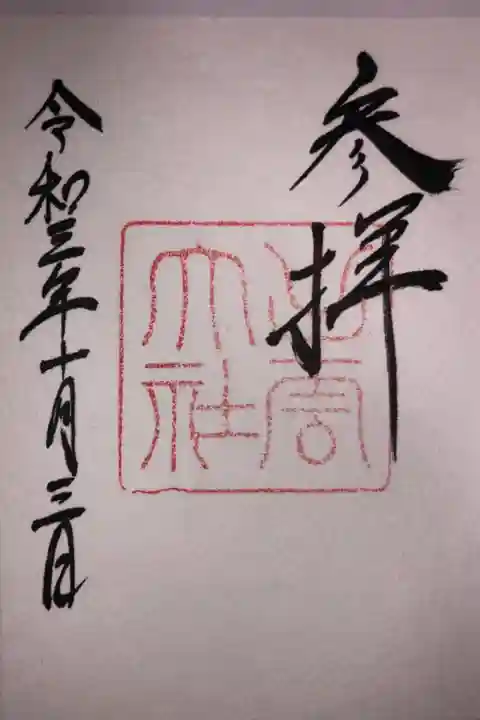 参拝
出雲
大社
令和三年十月三日